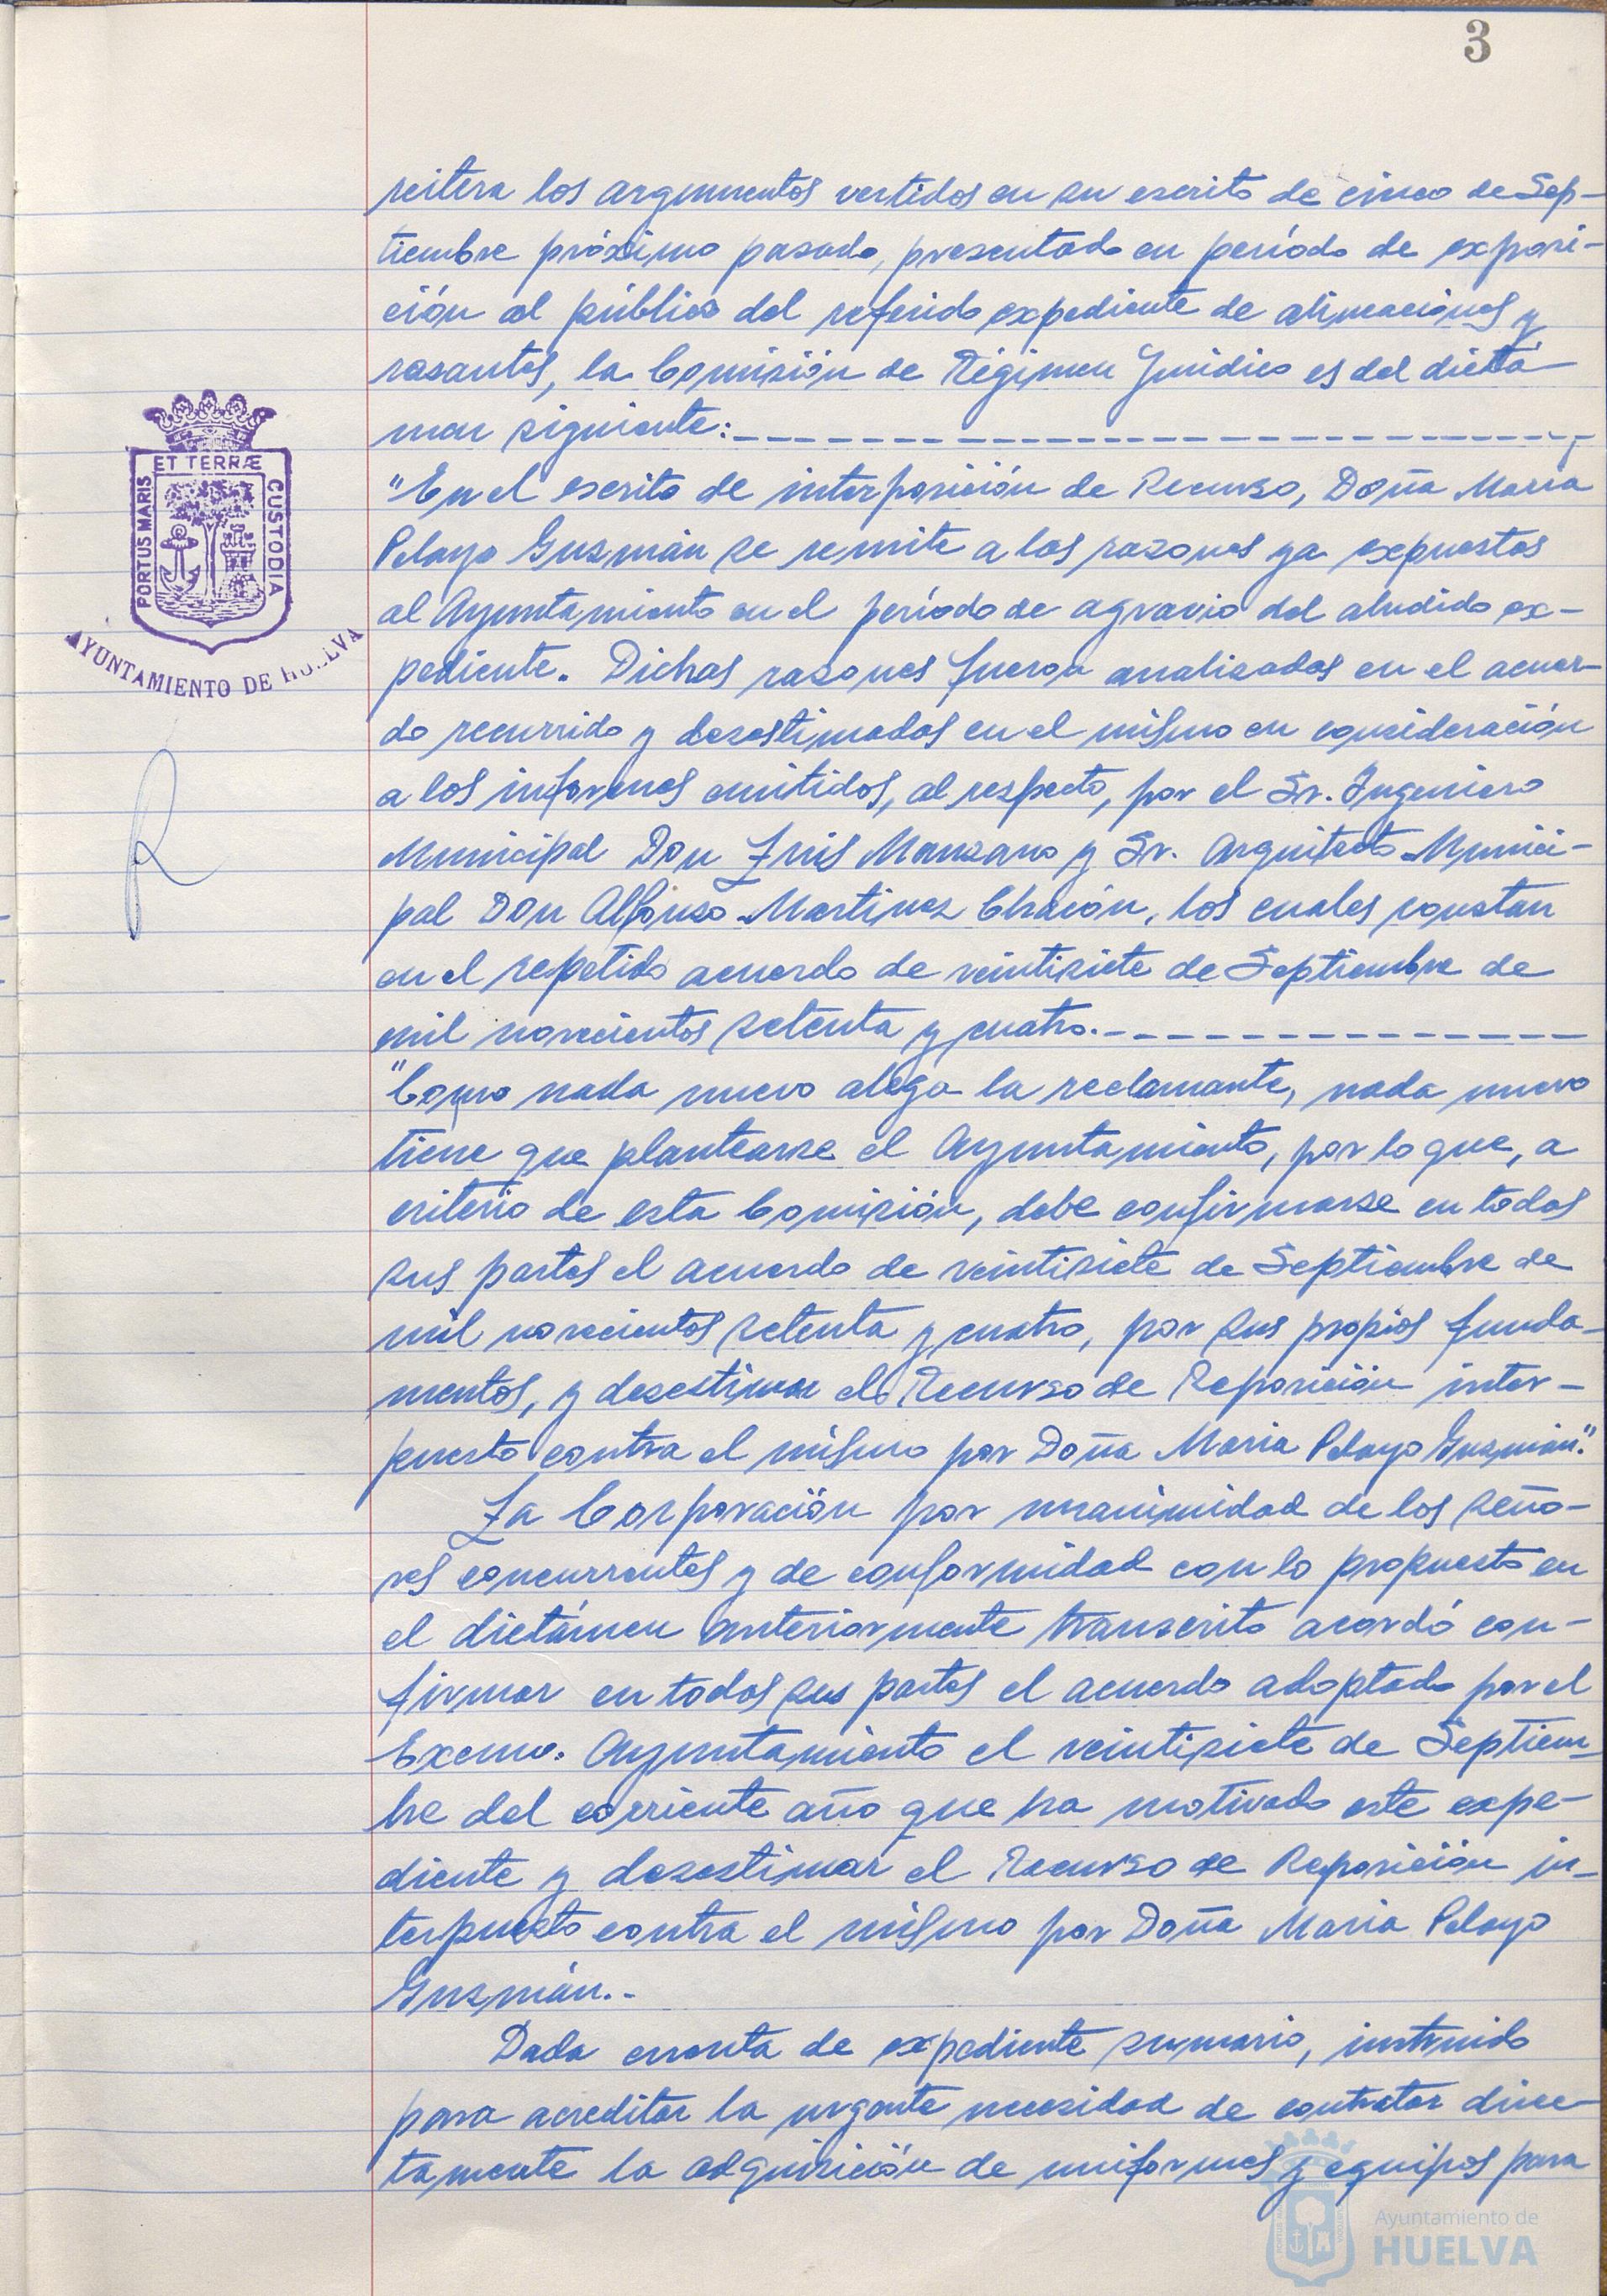 3
reitera los argumentos vertidos en su escrito de cinco de Sep-
tiembre próximo pasado, presentado en período de exposi-
ción al público del referido expediente de alineaciones y
rasantes, la Comisión de Régimen Jurídico es del dictá-
men siguiente:
"En el escrito de interposición de Recurso, Doña María
Pelayo Guzmán se remite a las razones ya expuestas
al Ayuntamiento en el período de agravio del aludido ex-
pediente. Dichas razones fueron analizadas en el acuer-
do recurrido y desestimadas en el mismo en consideración
a los informes emitidos, al respecto, por el Sr. Ingeniero
Municipal Don Luis Manzano y Sr. Arquitecto Munici-
pal Don Alfonso Martinez Chacón, los cuales constan
en el repetido acuerdo de veintisiete de Septiembre de
mil novecientos setenta y cuatro.-
"Como nada nuevo alega la reclamante, nada nuevo
tiene que plantearse el Ayuntamiento, por lo que, a
criterio de esta Comisión, debe confirmarse en todas
sus partes el acuerdo de veintisiete de Septiembre de
mil novecientos setenta y cuatro, por sus propios funda-
mentos, y desestimar el Recurso de Reposición inter-
puesto contra el mismo por Doña Maria Pelayo Guzmán".
La Corporación por unanimidad de los seño-
res concurrentes y de conformidad con lo propuesto en
el dictámen anteriormente transcrito acordó con-
firmar en todas sus partes el acuerdo adoptado por el
Excmo. Ayuntamiento el veintisiete de Septiem-
bre del corriente año que ha motivado este expe-
diente y desestimar el Recurso de Reposición in-
terpuesto contra el mismo por Doña Maria Pelayo
Guzmán.-
Dada cuenta de expediente sumario, instruido
para acreditar la urgente necesidad de contratar direc-
tamente la adquisición de uniformes y equipos para
PORTUS MARIS ET TERRÆ CUSTODIA
AYUNTAMIENTO DE HUELVA
Ayuntamiento de
HUELVA